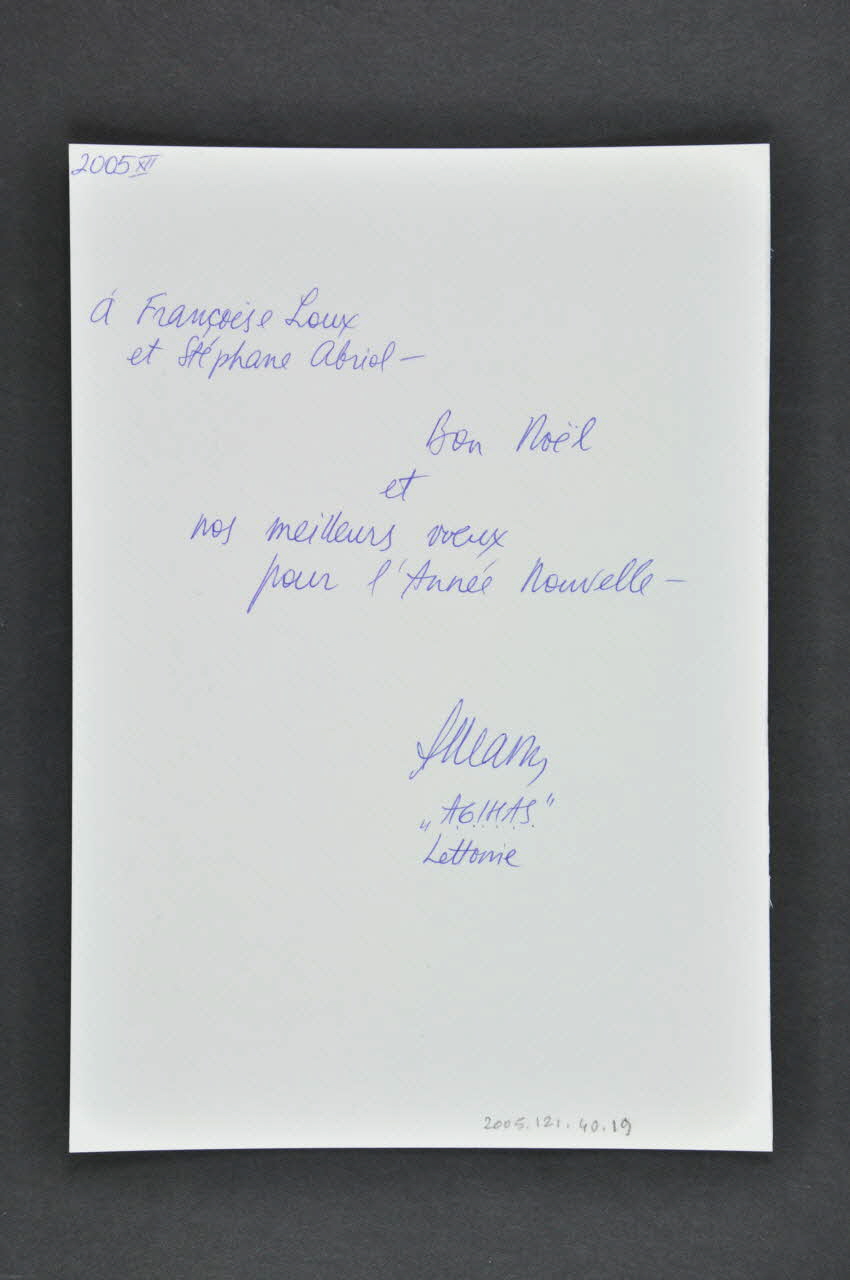 2005 XII
á Françoise Loux
et Stéphane Abriol —
Bon Noël
et
nos meilleurs voeux
pour l'Année Nouvelle —
„AGIHAS"
Lettonie
2005.121.40.19